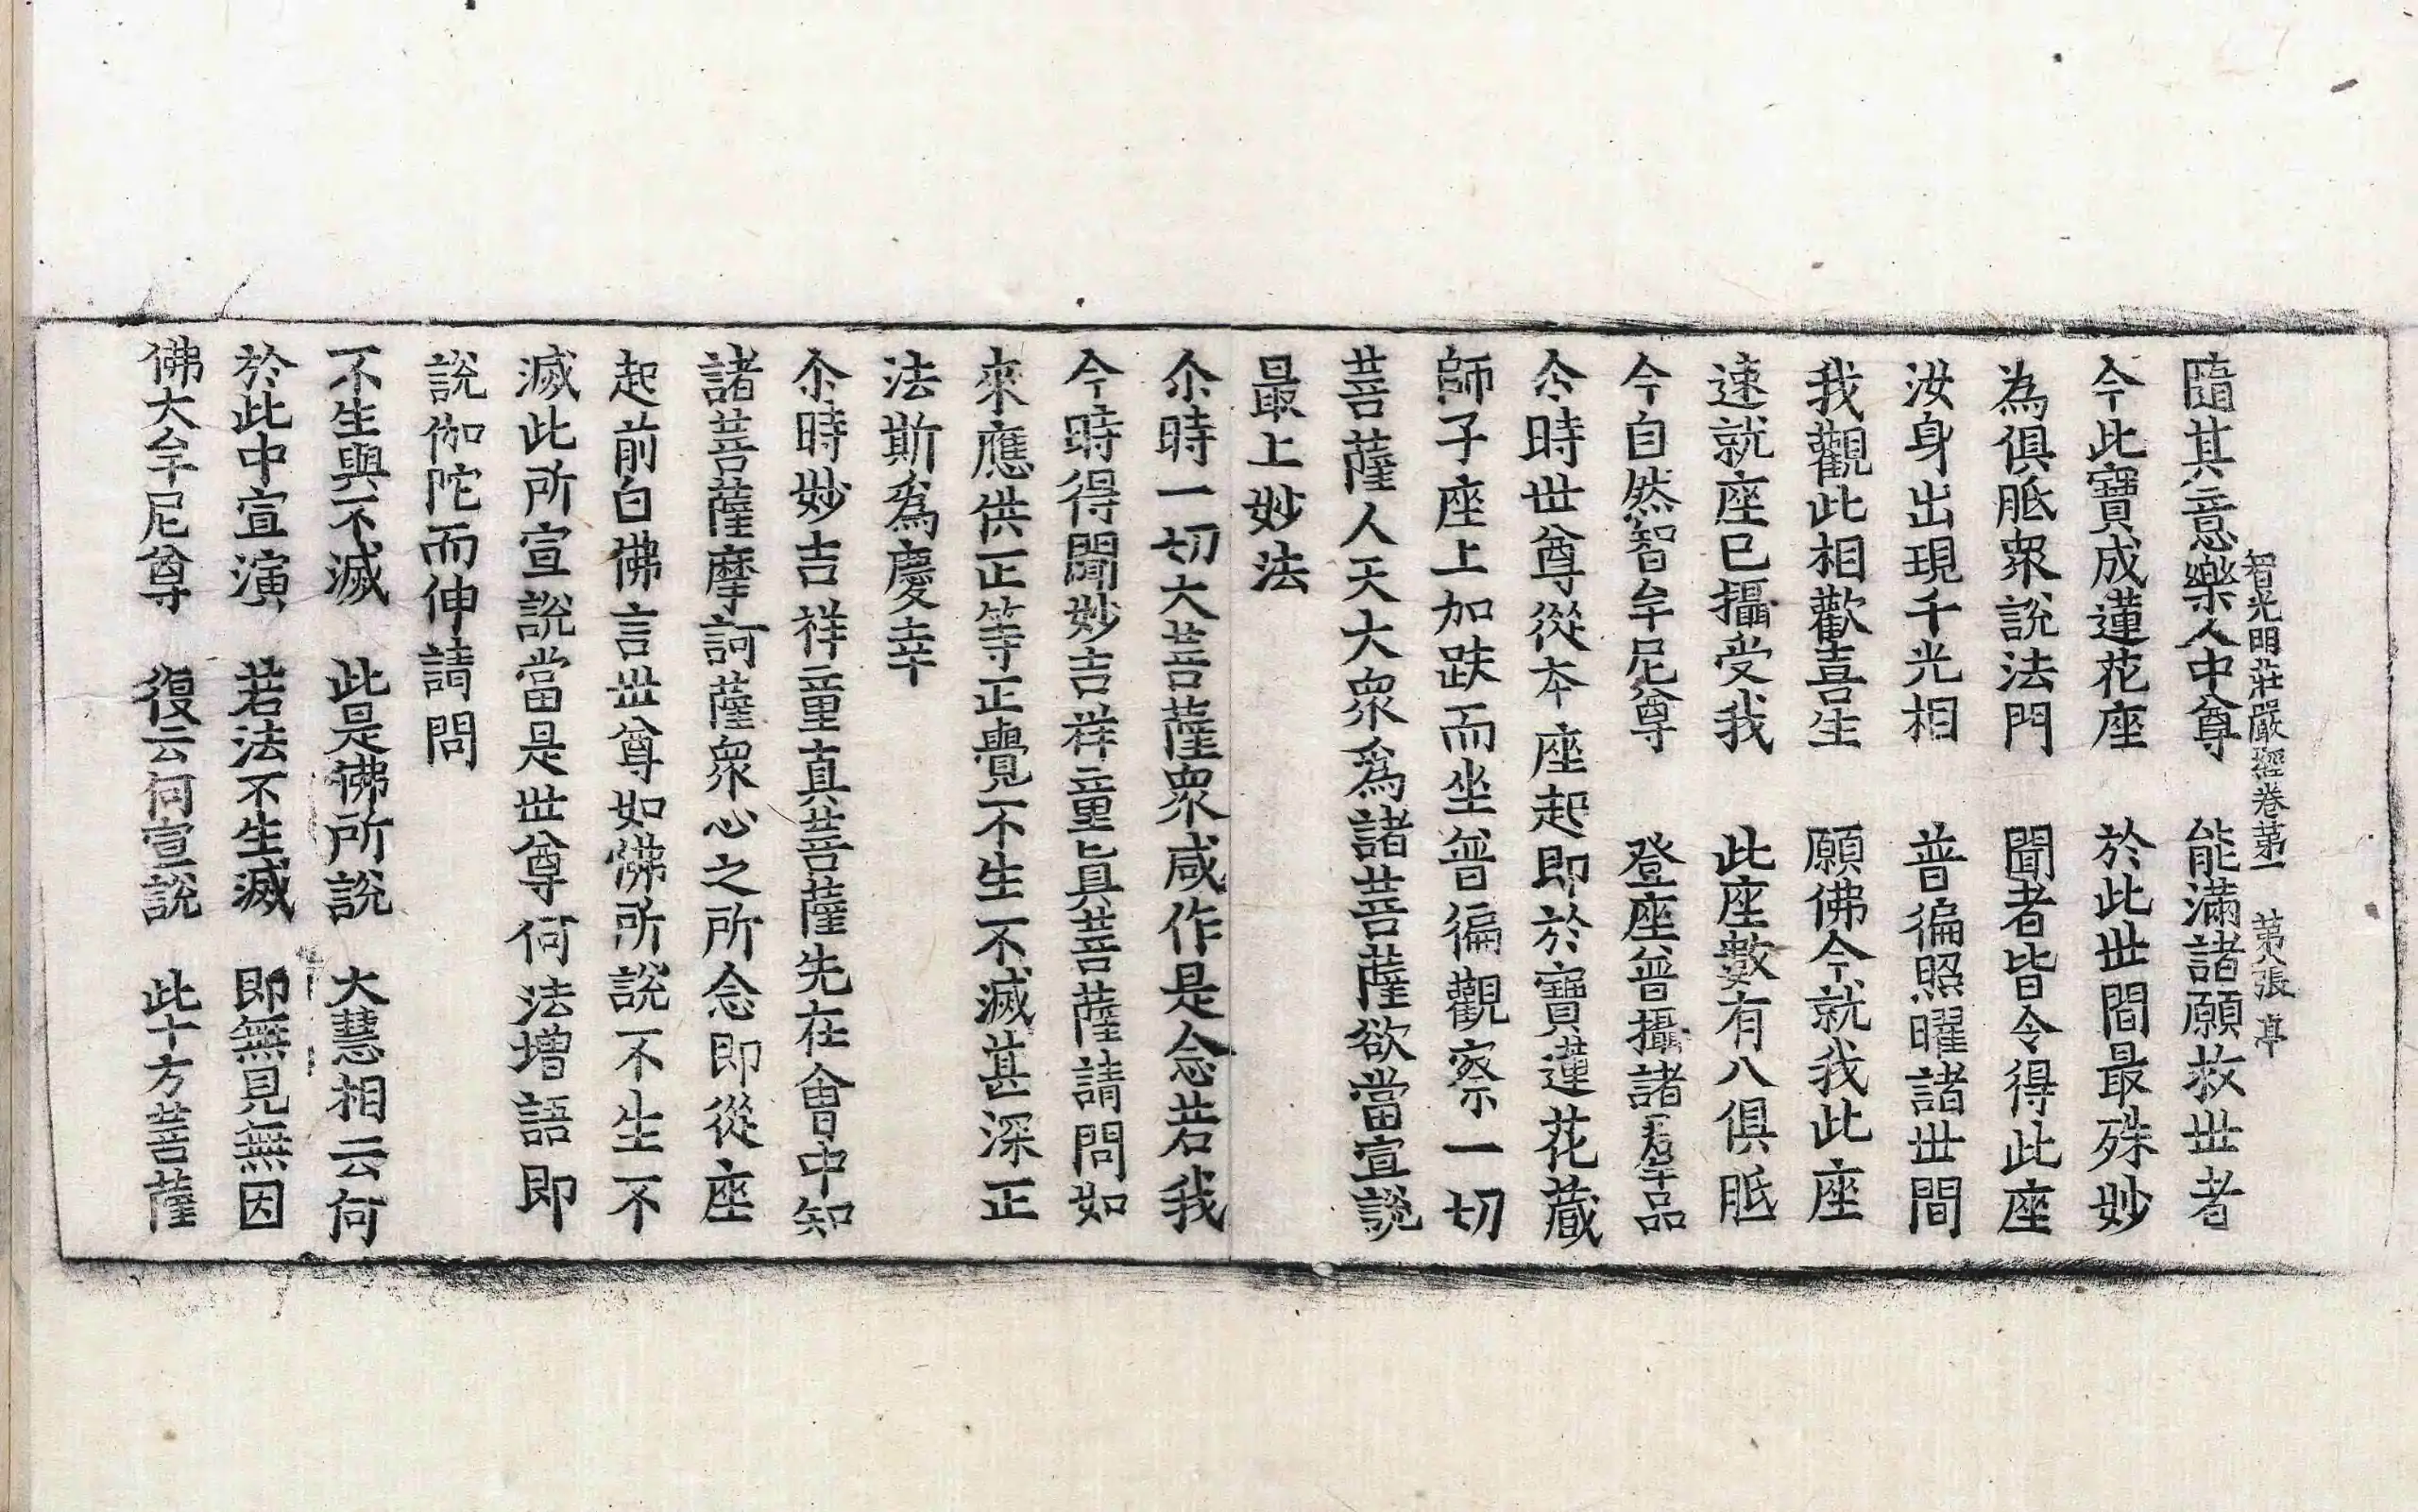 隨其意樂人中尊　能滿諸願救世者
智光明莊嚴經卷第一　第八張　卓
今此寶成蓮花座　於此世間最殊妙
為俱胝衆說法門　聞者皆令得此座
汝身出現千光相　普徧照曜諸世間
我觀此相歡喜生　願佛今就我此座
速就座已攝受我　此座數有八俱胝
今自然智牟尼尊　登座普攝諸
尒時世尊從本座起即於寶蓮花藏
師子座上加趺而坐普徧觀察一切
菩薩人天大衆爲諸菩薩欲當宣說
最上妙法
尒時一切大菩薩衆咸作是念若我
今時得聞妙吉祥童眞菩薩請問如
來應供正等正覺不生不滅甚深正
法斯爲慶幸
尒時妙吉祥童真菩薩先在會中知
諸菩薩摩訶薩衆心之所念即從座
起前白佛言世尊如佛所說不生不
滅此所宣說當是世尊何法增語即
說伽陀而伸請問
不生與不滅　此是佛所說　大慧相云何
於此中宣演　若法不生滅　即無見無因
佛大牟尼尊　復云何宣說　此十方菩薩